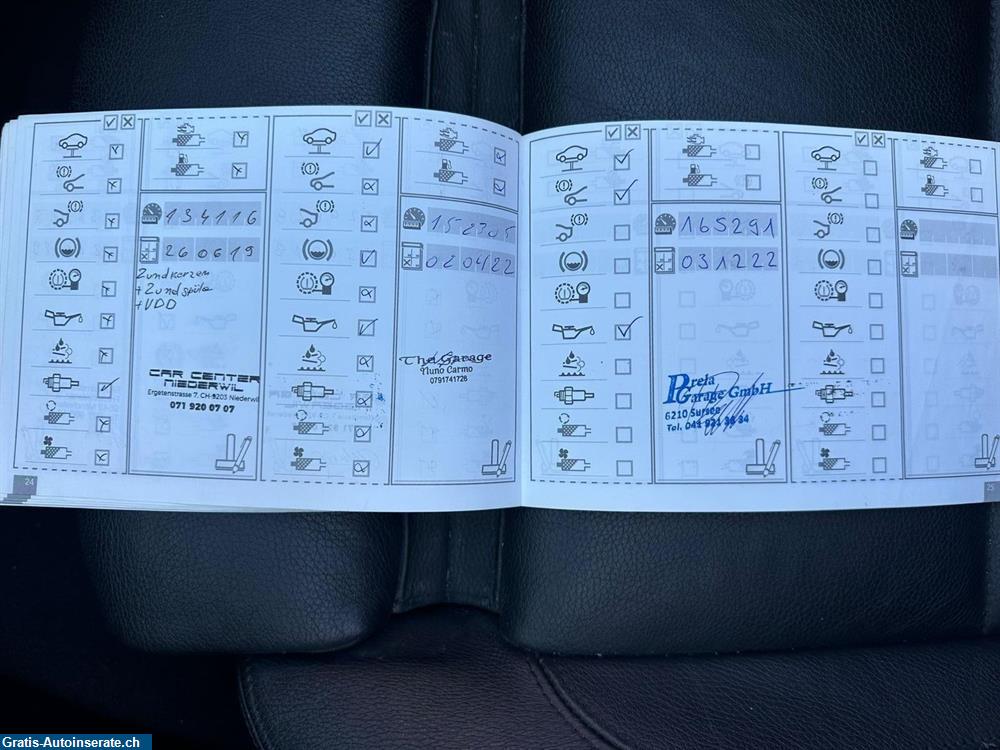 134116
260619
Zundkerzen
+ Zundspüle
+ VDD
CAR CENTER
NIEDERWIL
Ergetenstrasse 7, CH-9203 Niederwil
071 920 07 07
24
152305
020422
The Garage
Nuno Carmo
0791741726
165291
031222
Prela
Garage GmbH
6210 Sursee
Tel. 041 921 34 34
25
Gratis-Autoinserate.ch